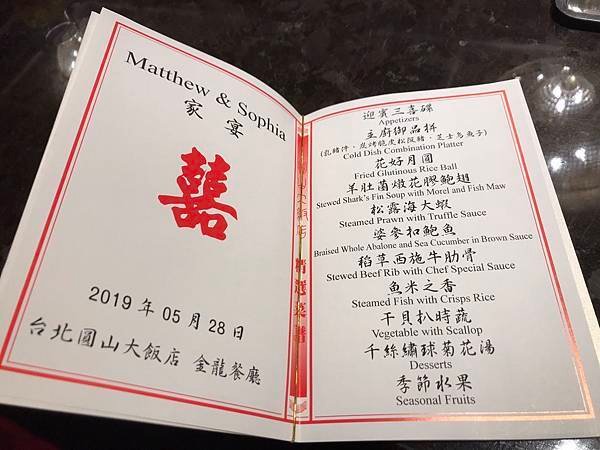 Matthew & Sophia
家宴
囍
2019 年 05 月 28 日
台北圓山大飯店 金龍餐廳
精選菜譜
迎賓三喜碟
Appetizers
主廚御品拼
Cold Dish Combination Platter
花好月圓
Fried Glutinous Rice Ball
羊肚菌燉花膠鮑翅
Stewed Shark's Fin Soup with Morel and Fish Maw
松露海大蝦
Steamed Prawn with Truffle Sauce
婆參扣鮑魚
Braised Whole Abalone and Sea Cucumber in Brown Sauce
稻草西施牛肋骨
Stewed Beef Rib with Chef Special Sauce
魚米之香
Steamed Fish with Crisps Rice
干貝扒時蔬
Vegetable with Scallop
千絲繡球菊花湯
Desserts
季節水果
Seasonal Fruits